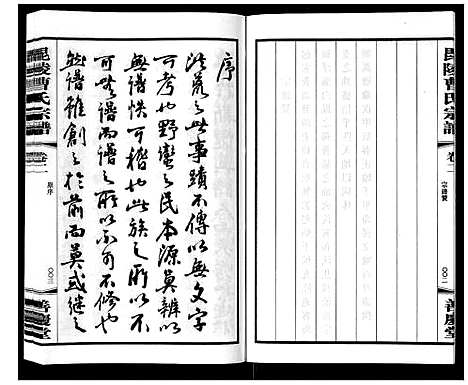 毘陵曹氏宗譜
卷一
宗譜贊
〇〇二
善慶堂
序
洪荒之世事蹟不傳以無文字
可考也野蠻之民本源莫辨以
無譜帙可稽也此族之所以不
可無譜而譜之所以不可不修也
然譜雖創之於前而莫或繼之
毘陵曹氏宗譜
卷一
原序
〇〇三
善慶堂